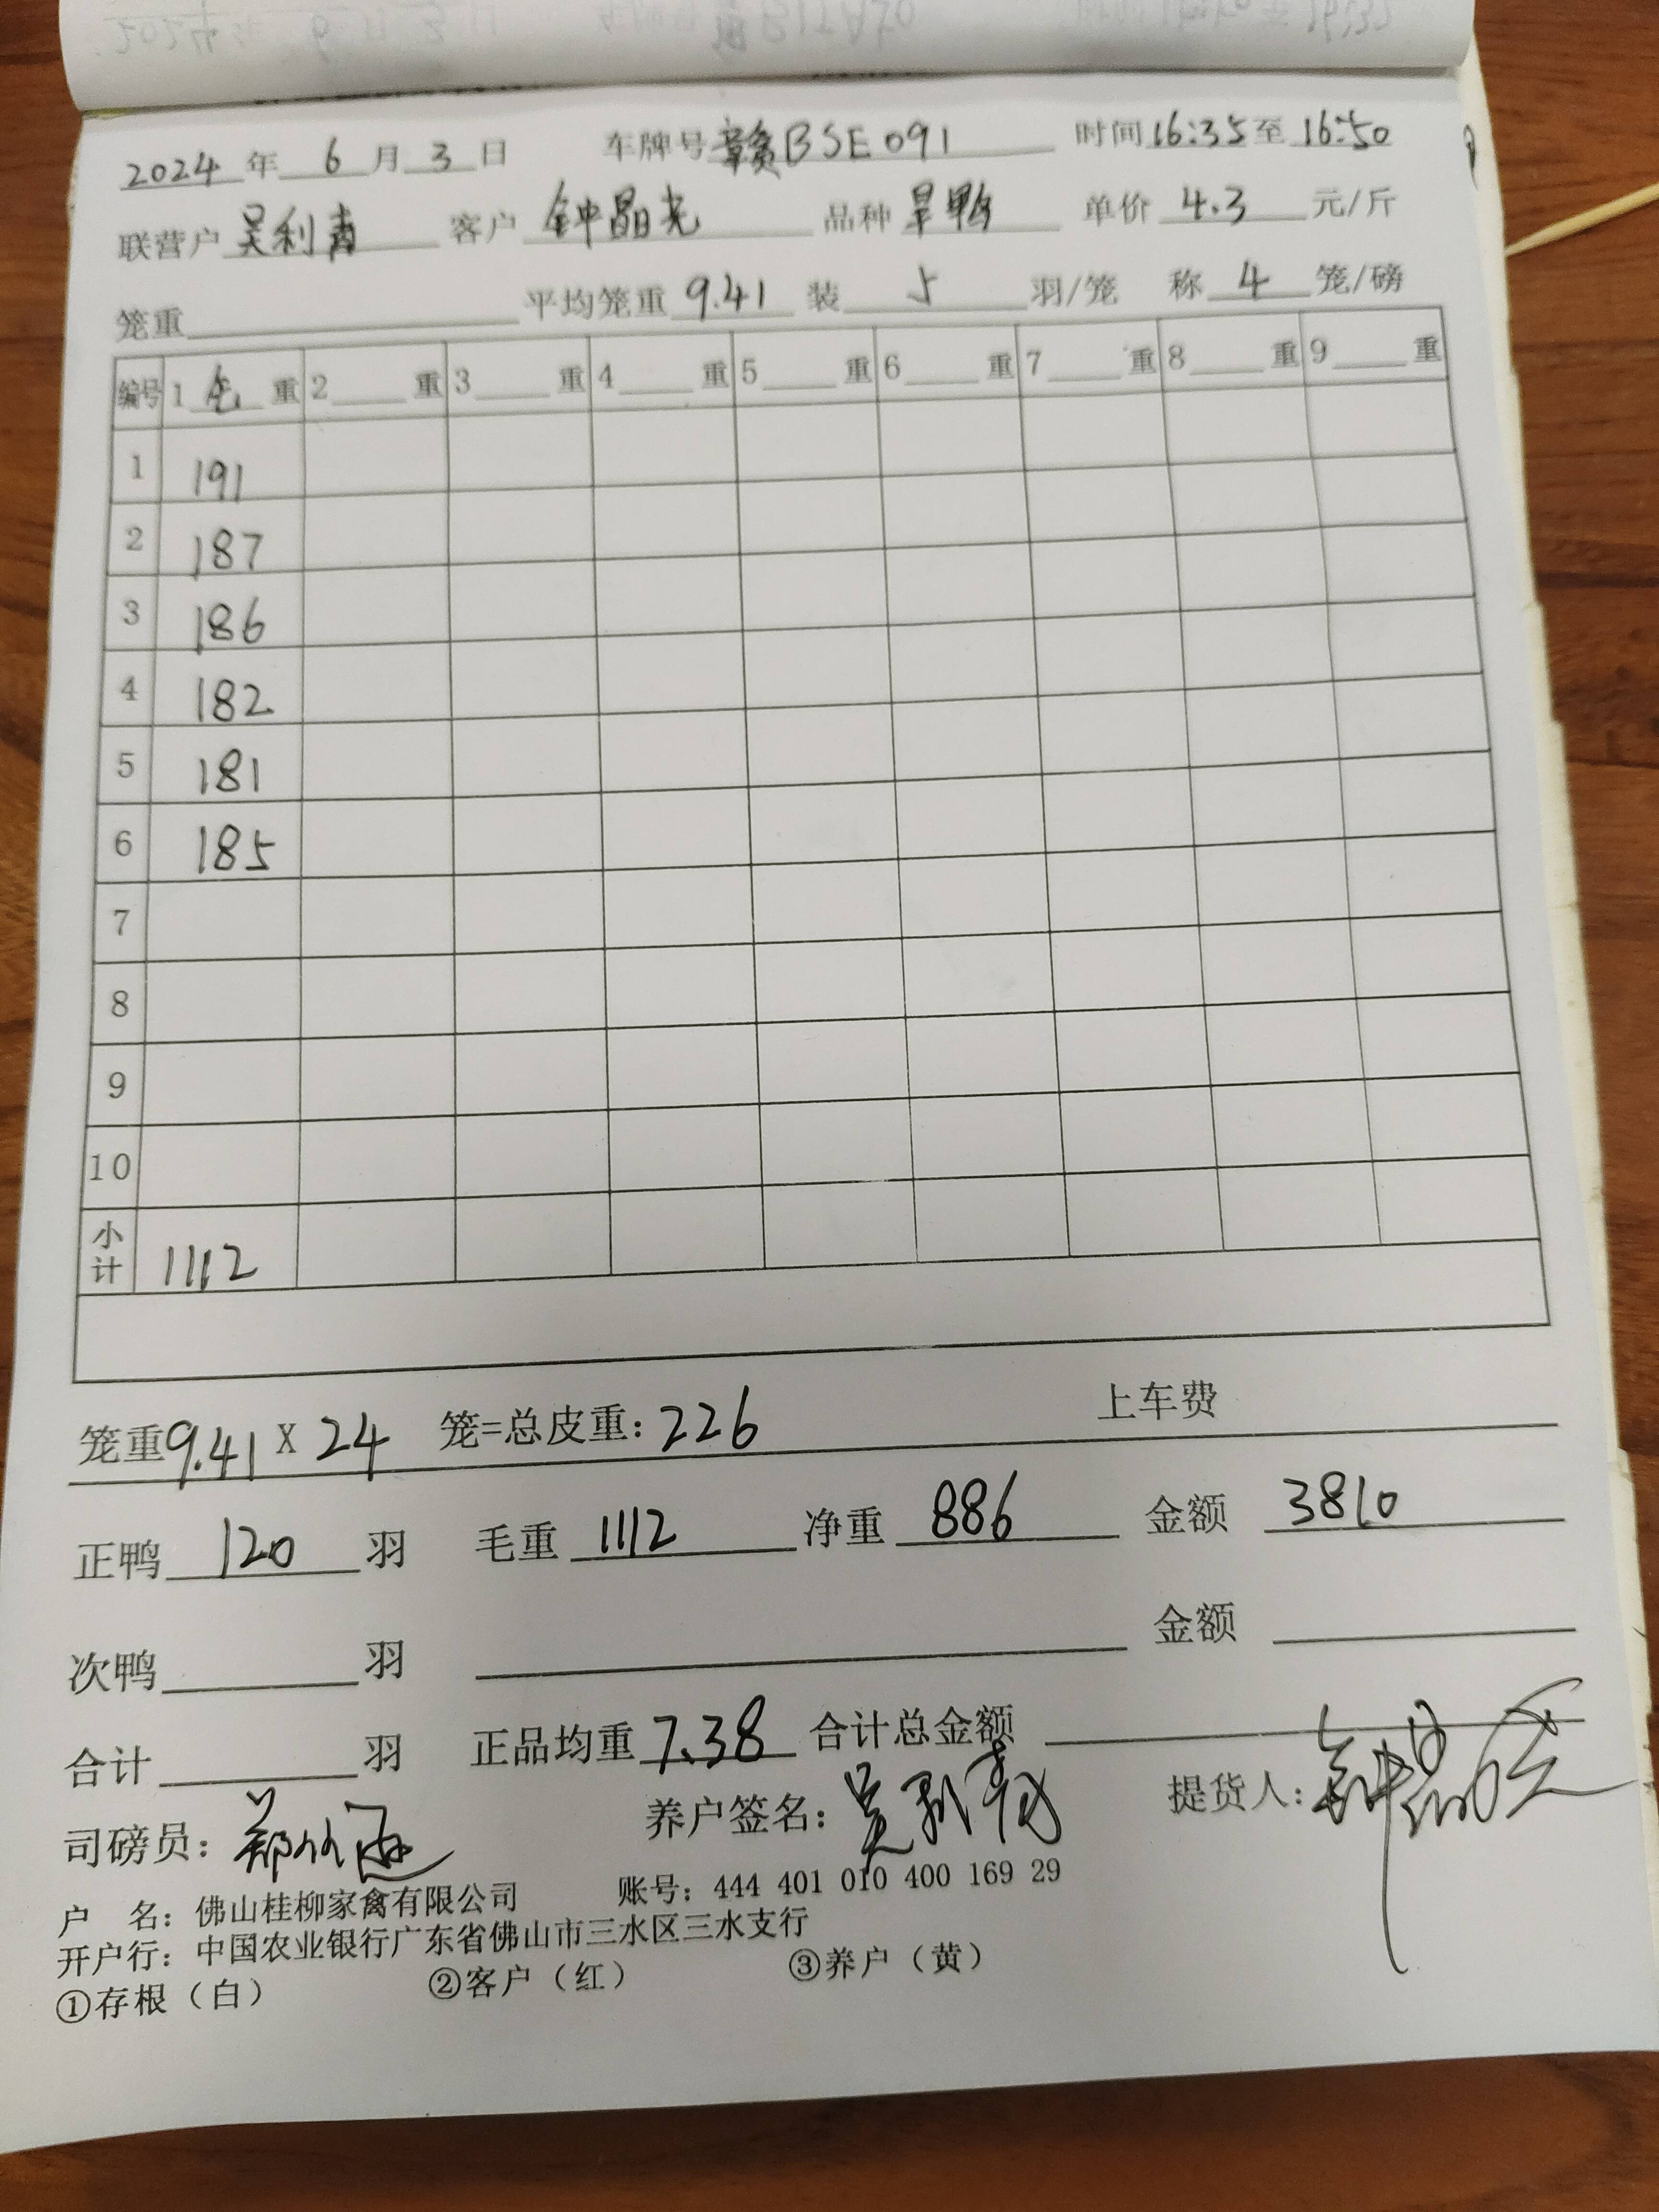 2024 年 6 月 3 日 车牌号 赣BSE091 时间 16:35 至 16:50
联营户 吴利青 客户 钟晶光 品种 旱鸭 单价 4.3 元/斤
笼重 平均笼重 9.41 装 5 羽/笼 称 4 笼/磅
编号 1 毛 重 2 重 3 重 4 重 5 重 6 重 7 重 8 重 9 重
1 191
2 187
3 186
4 182
5 181
6 185
7
8
9
10
小计 1112
笼重 9.41 X 24 笼=总皮重: 226 上车费
正鸭 120 羽 毛重 1112 净重 886 金额 3810
次鸭 羽 金额
合计 羽 正品均重 7.38 合计总金额
司磅员: 养户签名: 吴利青 提货人: 钟晶光
户 名: 佛山桂柳家禽有限公司 账号: 444 401 010 400 169 29
开户行: 中国农业银行广东省佛山市三水区三水支行
①存根(白) ②客户(红) ③养户(黄)